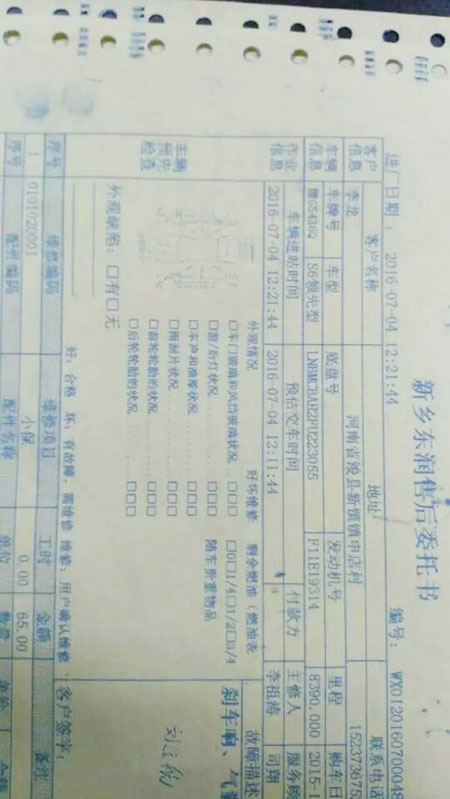 新乡东润售后委托书
进厂日期： 2016-07-04 12:21:44 编号： WX0120160700048
客户信息 客户名称 地址 联系电话
李龙 河南省浚县新镇镇申店村 152373675
车辆信息 车牌号 车型 底盘号 发动机号 里程 购车日
S6领先型 F11E19314 8390.000 2015-1
作业信息 车辆进站时间 预估交车时间 付款方 主修人 服务顾
2016-07-04 12:21:44 2016-07-04 12:11:44 李祖涛 司翔
车辆预先检查 外观情况 好坏维修 剩余燃油（燃油表 故障描述
□车门玻璃和风挡玻璃状况 □□□ □0□1/4□1/2□3/4 刹车响、气
□前/后灯状况 □□□ 随车贵重物品
□车声和油漆状况 □□□
□雨刮片状况 □□□
□前轮轮胎的状况 □□□
□后轮轮胎的状况 □□□
外观缺陷：□有□无
好：合格 坏：有故障，需维修 维修：用户确认维修 客户签字：
序号 维修编码 维修项目 工时 金额 备注
1 0101020001 小保 0.00 65.00
序号 配件编码 配件名称 单位 数量 单价 金额